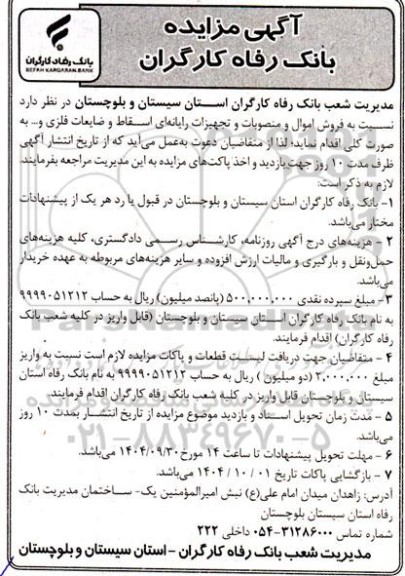 آگهی مزایده
بانک رفاه کارگران
بانک رفاه کارگران
REFAH KARGARAN BANK
مدیریت شعب بانک رفاه کارگران استان سیستان و بلوچستان در نظر دارد
نسبت به فروش اموال و منصوبات و تجهیزات رایانه‌ای اسقاط و ضایعات فلزی و... به
صورت کلی اقدام نماید؛ لذا از متقاضیان دعوت به‌عمل می‌آید که از تاریخ انتشار آگهی
ظرف مدت ۱۰ روز جهت بازدید و اخذ پاکت‌های مزایده به این مدیریت مراجعه بفرمایند.
لازم به ذکر است:
۱- بانک رفاه کارگران استان سیستان و بلوچستان در قبول یا رد هر یک از پیشنهادات
مختار می‌باشد.
۲ - هزینه‌های درج آگهی روزنامه، کارشناس رسمی دادگستری، کلیه هزینه‌های
حمل‌ونقل و بارگیری و مالیات ارزش افزوده و سایر هزینه‌های مربوطه به عهده خریدار
می‌باشد.
۳- مبلغ سپرده نقدی ۵۰۰,۰۰۰,۰۰۰ (پانصد میلیون) ریال به حساب ۹۹۹۹۰۵۱۲۱۲
به نام بانک رفاه کارگران استان سیستان و بلوچستان (قابل واریز در کلیه شعب بانک
رفاه کارگران) اقدام فرمایند.
۴ - متقاضیان جهت دریافت لیست قطعات و پاکات مزایده لازم است نسبت به واریز
مبلغ ۲,۰۰۰,۰۰۰ (دو میلیون) ریال به حساب ۹۹۹۹۰۵۱۲۱۲ به نام بانک رفاه استان
سیستان و بلوچستان قابل واریز در کلیه شعب بانک رفاه کارگران اقدام فرمایند.
۵ - مدت زمان تحویل اسناد و بازدید موضوع مزایده از تاریخ انتشار بمدت ۱۰ روز
می‌باشد.
۶ - مهلت تحویل پیشنهادات تا ساعت ۱۴ مورخ ۱۴۰۴/۰۹/۳۰ می‌باشد.
۷ - بازگشایی پاکات تاریخ ۰۱ / ۱۰ / ۱۴۰۴ می‌باشد.
آدرس: زاهدان میدان امام علی(ع) نبش امیرالمؤمنین یک- ساختمان مدیریت بانک
رفاه استان سیستان بلوچستان
شماره تماس ۳۱۲۸۶۰۰۰-۰۵۴ داخلی ۲۲۲
مدیریت شعب بانک رفاه کارگران - استان سیستان و بلوچستان
۰۲۱-۸۸۳۴۹۶۷۰-۵